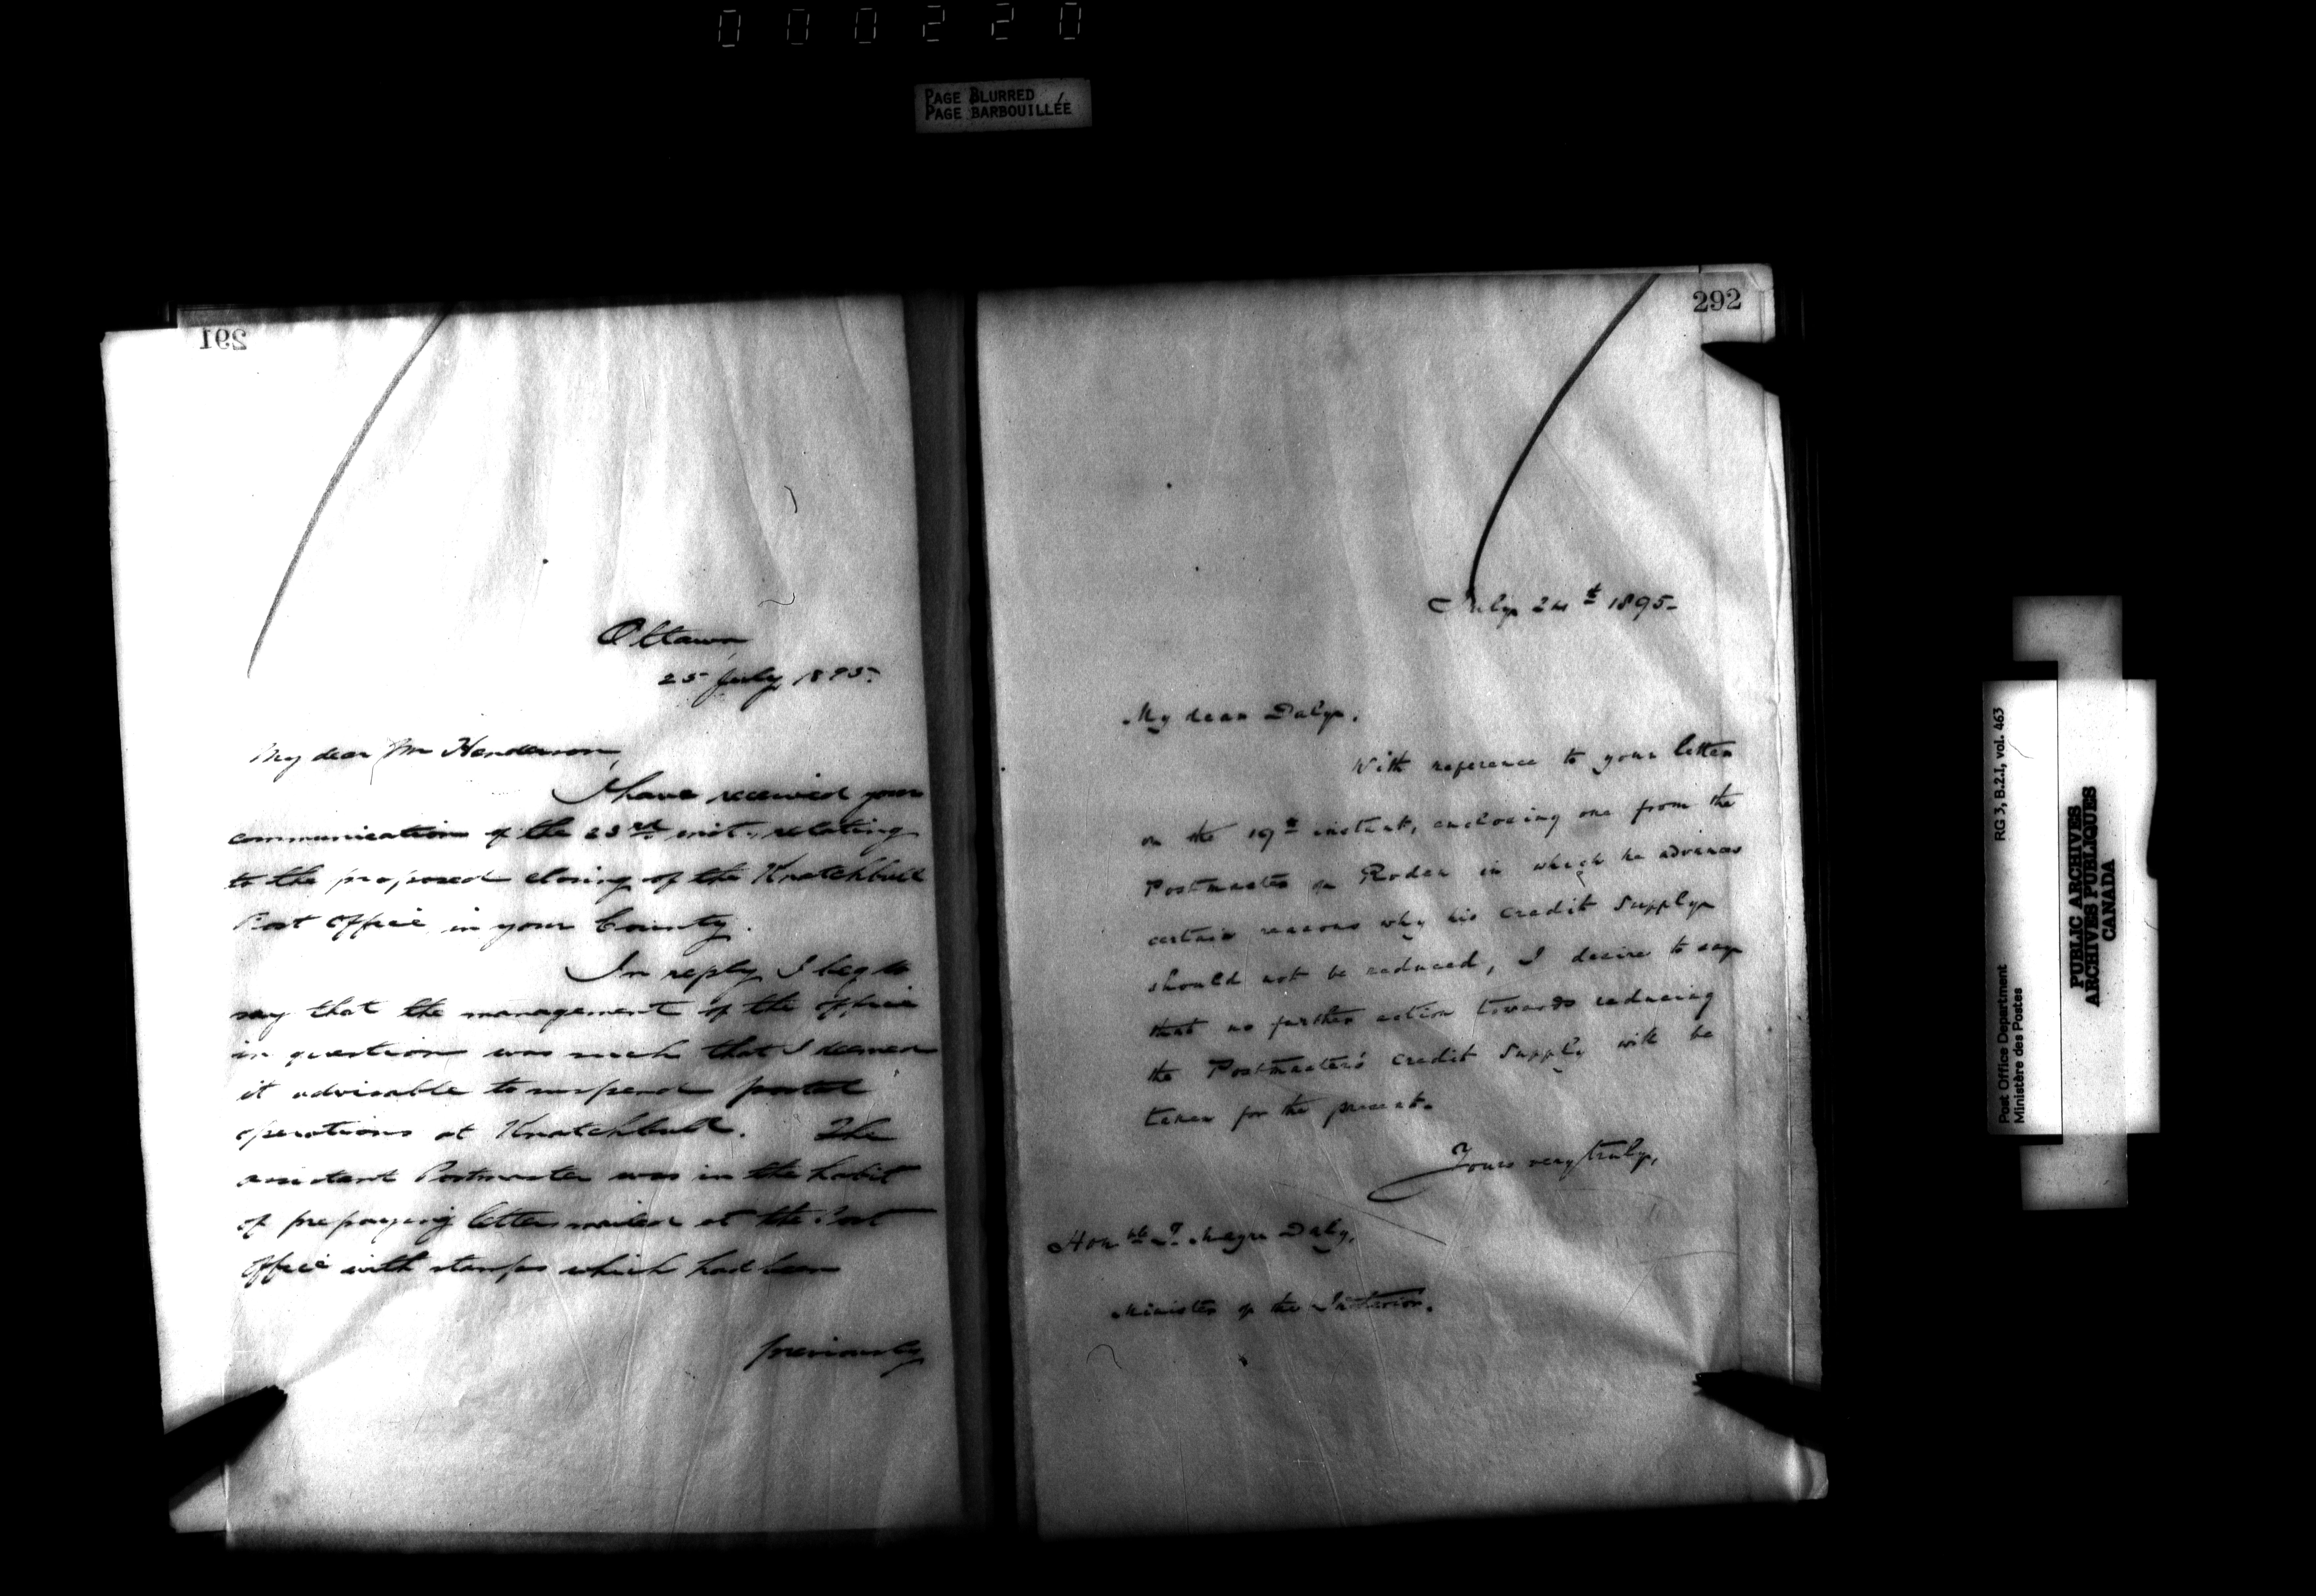 000220
PAGE BLURRED
PAGE BARBOUILLÉE
291
Ottawa
25 July 1895.
My dear Mr Henderson,
I have received your
communication of the 23rd inst., relating
to the proposed closing of the Knatchbull
Post Office in your County.
In reply I beg to
say that the management of the office
in question was such that I deemed
it advisable to suspend postal
operations at Knatchbull. The
assistant Postmaster was in the habit
of prepaying letters mailed at the Post
Office with stamps which had been
previously
292
July 24th 1895-
My dear Daly,
With reference to your letter
on the 19th instant, enclosing one from the
Postmaster on Roden in which he advances
certain reasons why his credit supply
should not be reduced, I desire to say
that no further action towards reducing
the Postmaster's credit supply will be
taken for the present.
Yours very truly,
Honble T. Mayne Daly,
Minister of the Interior.
Post Office Department RG 3, B.2.I, vol. 463
Ministère des Postes
PUBLIC ARCHIVES
ARCHIVES PUBLIQUES
CANADA